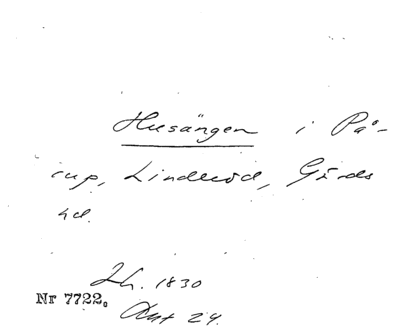 Husängen i På-
rup, Linderöd, Gärds
hd.
Lh. 1830
Nr 7722.
Akt 24.